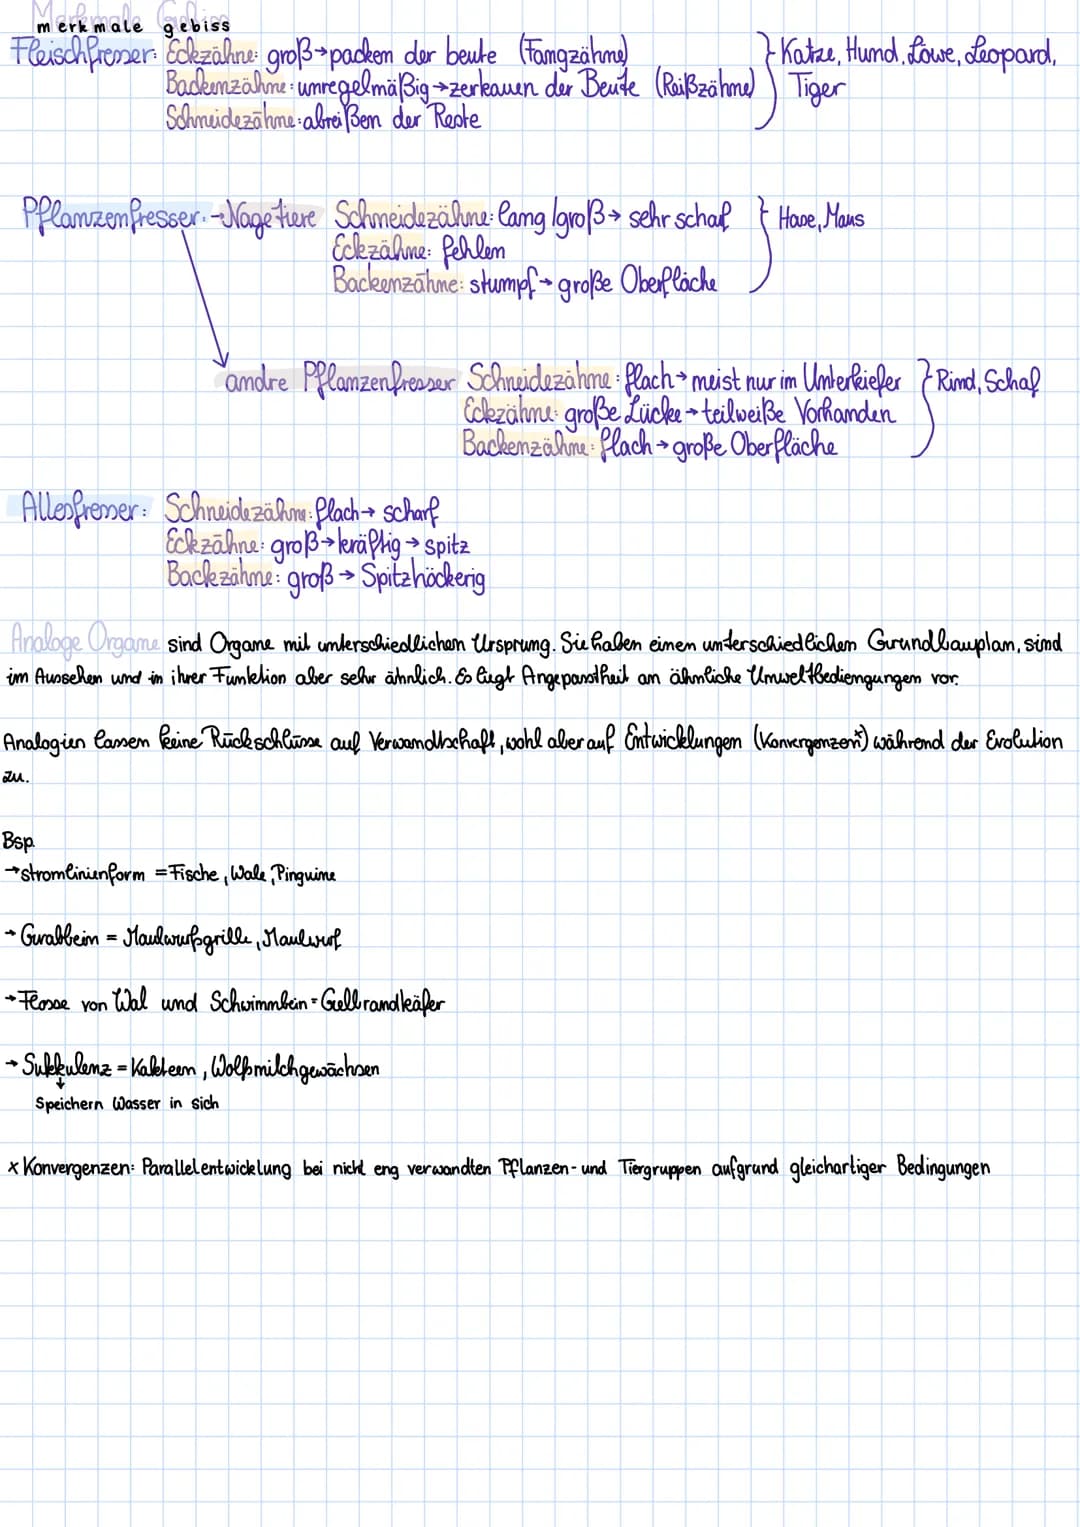 Merkmale Gebiss
merkmale gebiss
Fleischfresser: Eckzähne: groß→packen der beute (Fangzähne) } Katze, Hund, Löwe, Leopard,
Backenzähne: unregelmäßig→zerkauen der Beute (Reißzähne) Tiger
Schneidezähne: abreißen der Reste
Pflanzenfresser:→Nagetiere Schneidezähne: lang/groß→ sehr scharf } Hase, Maus
Eckzähne: fehlen
Backenzähne: stumpf→große Oberfläche
andre Pflanzenfresser Schneidezähne: flach→meist nur im Unterkiefer } Rind, Schaf
Eckzähne: große Lücke→teilweiße Vorhanden
Backenzähne: flach→große Oberfläche
Allesfresser: Schneidezähne: flach→ scharf
Eckzähne: groß→kräftig→spitz
Backzähne: groß→Spitzhöckerig
Analoge Organe sind Organe mit unterschiedlichen Ursprung. Sie haben einen unterschiedlichen Grundbauplan, sind
im Aussehen und in ihrer Funktion aber sehr ähnlich. Es liegt Angepasstheit an ähnliche Umweltbediengungen vor.
Analogien lassen keine Rückschlüsse auf Verwandtschaft, wohl aber auf Entwicklungen (Konvergenzen*) während der Evolution
zu.
Bsp.
→stromlinienform = Fische, Wale, Pinguine
→Grabbein = Maulwurfsgrille, Maulwurf
→Flosse von Wal und Schwimmbein = Gelbrandkäfer
→Sukkulenz = Kakteen, Wolfsmilchgewächsen
↓
Speichern Wasser in sich
x Konvergenzen: Parallelentwicklung bei nicht eng verwandten Pflanzen- und Tiergruppen aufgrund gleichartiger Bedingungen